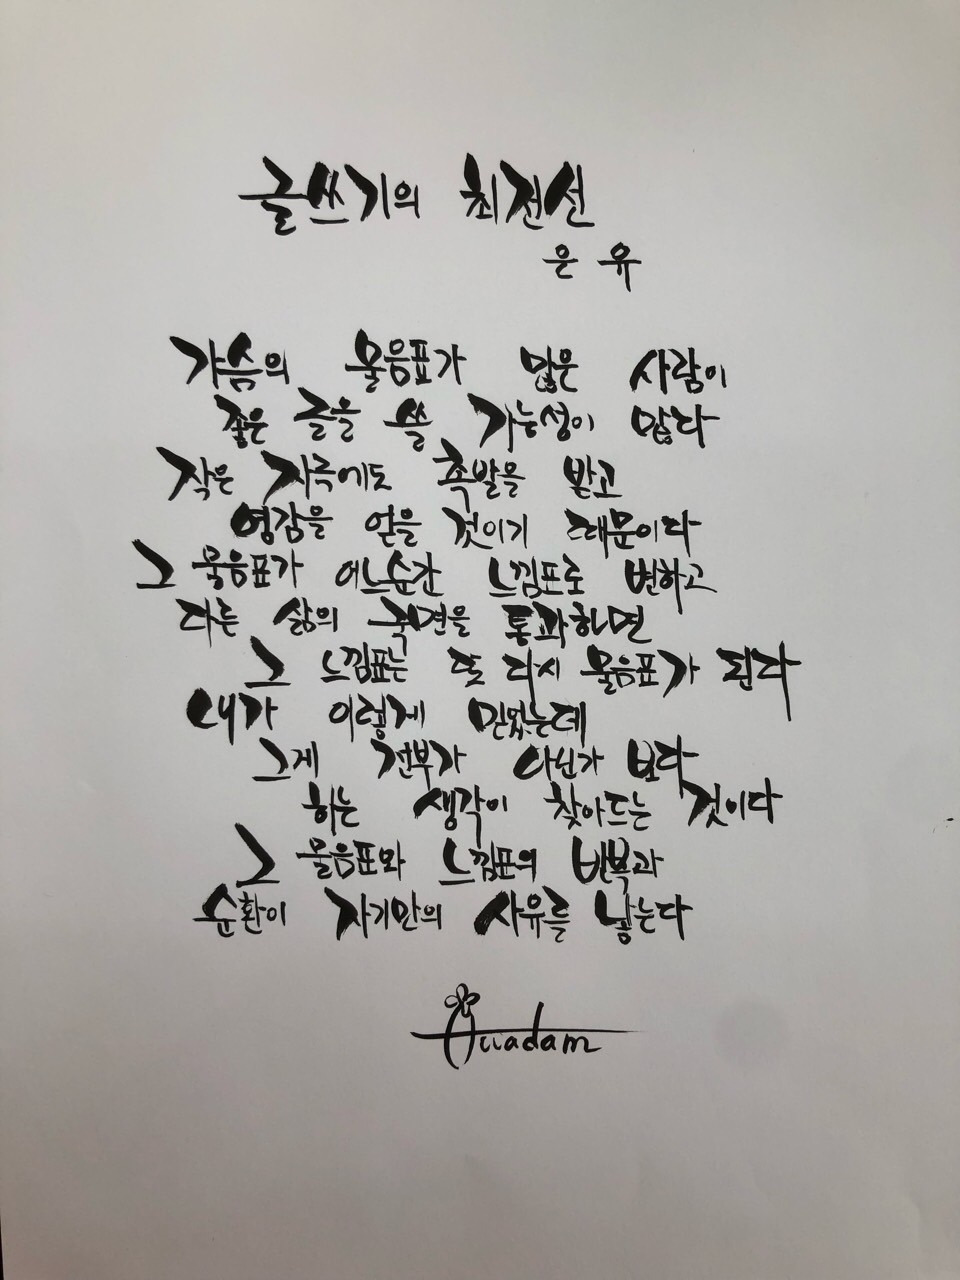 글쓰기의 최전선
은유
가슴의 물음표가 많은 사람이
좋은 글을 쓸 가능성이 많다
작은 자극에도 촉발을 받고
영감을 얻을 것이기 때문이다
그 물음표가 어느순간 느낌표로 변하고
다른 삶의 국면을 통과하면
그 느낌표는 또 다시 물음표가 된다
내가 이렇게 믿었는데
그게 전부가 아닌가 보다
하는 생각이 찾아드는 것이다
그 물음표와 느낌표의 반복과
순환이 자기만의 사유를 낳는다